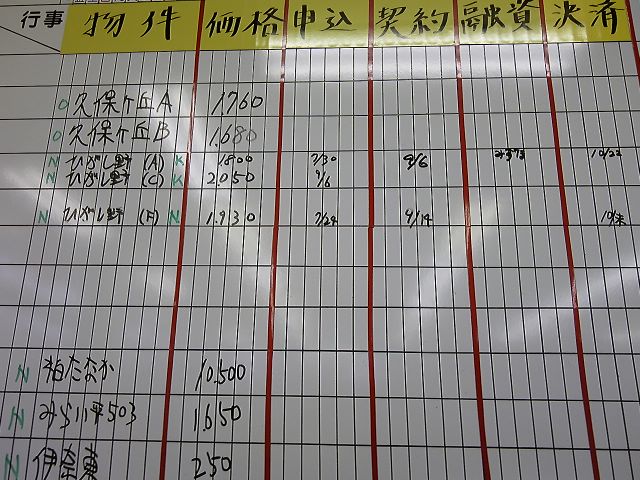 行事 物件 価格 申込 契約 融資 決済
O 久保ヶ丘A 1.760
O 久保ヶ丘B 1.680
N ひがし野 (A) K 1800 7/30 9/6 みずほ 10/22
N ひがし野 (C) K 2.050 9/6
N ひがし野 (F) N 1.930 7/24 9/14 10/末
N 柏たなか 10.500
N みらい平503 1650
N 伊奈東 250